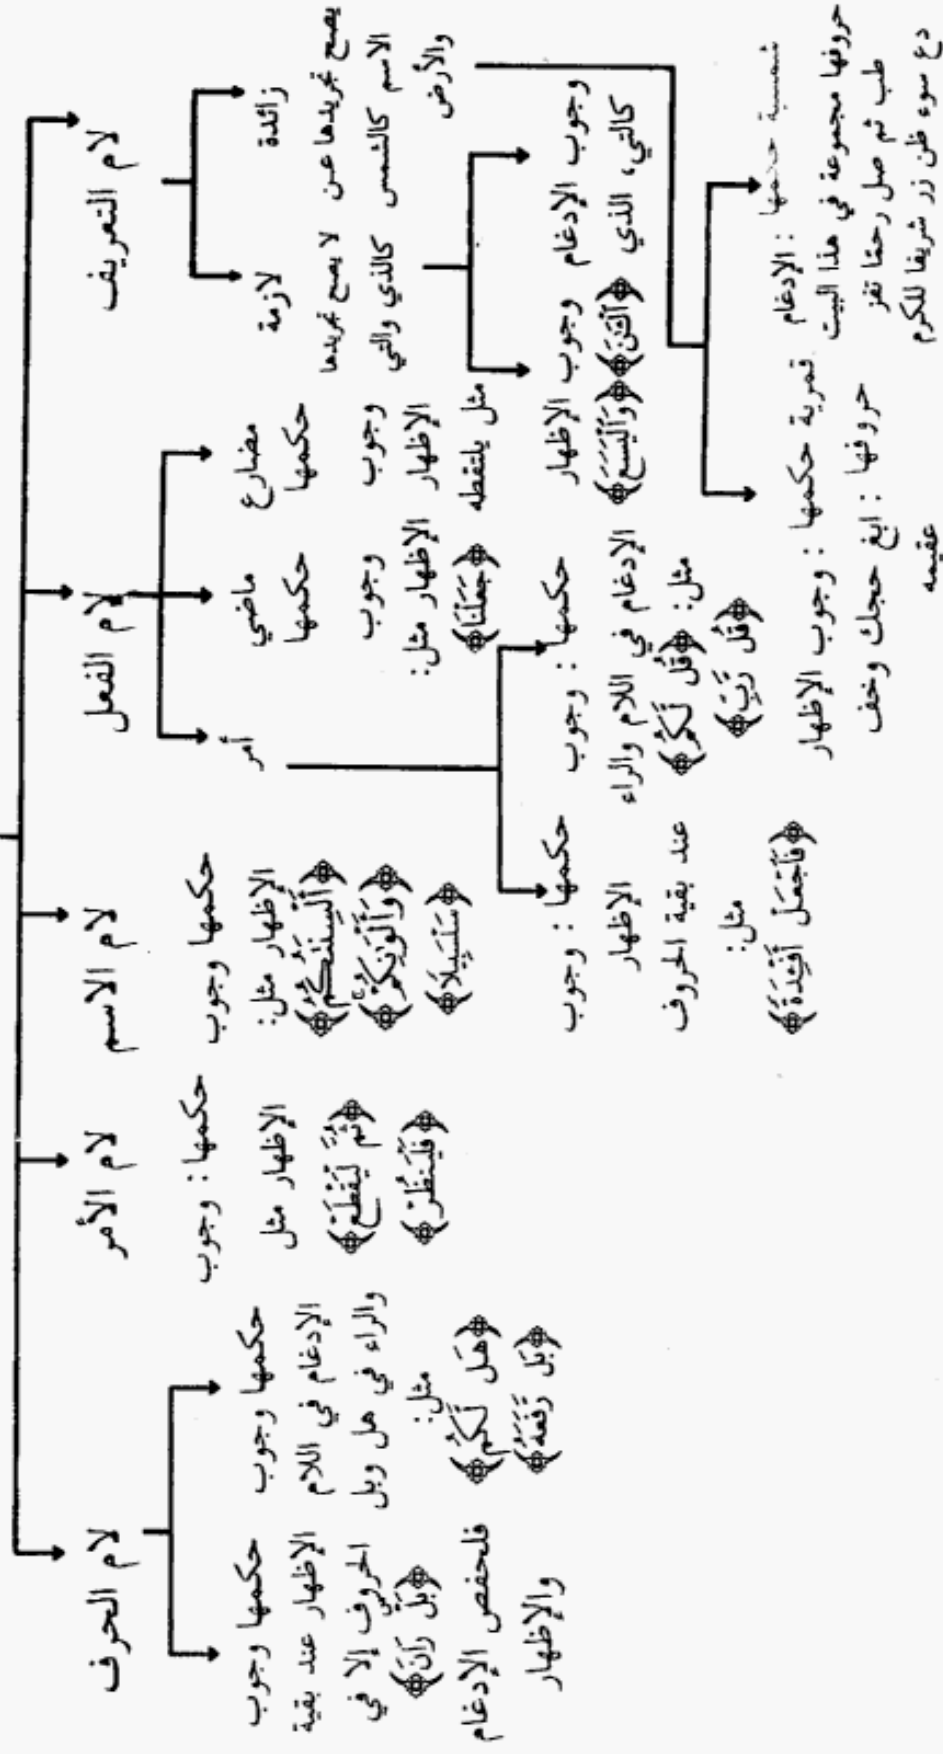 لام التعريف
زائدة
يصح تجريدها عن
الاسم كالشمس
والأرض
لازمة
لا يصح تجريدها
كالذي والتي
وجوب الإدغام
كالتي، الذي
وجوب الإظهار
﴿وَٱلْيَسَعَ﴾ ﴿ٱلْـَٰٔنَ﴾
شمسية حكمها : الإدغام
حروفها مجموعة في هذا البيت
طب ثم صل رحمًا تفز
دع سوء ظن زر شريفا للكرم
قمرية حكمها : وجوب الإظهار
حروفها : ابغ حجك وخف
عقيمه
لام الفعل
مضارع
حكمها
وجوب
الإظهار
مثل يلتقطه
ماضي
حكمها
وجوب
الإظهار مثل:
﴿جَعَلْنَا﴾
أمر
حكمها : وجوب
الإدغام في اللام والراء
مثل:
﴿قُل لَّكُم﴾
﴿قُل رَّبِّ﴾
حكمها : وجوب
الإظهار
عند بقية الحروف
مثل:
﴿فَٱجْعَلْ أَفْـِٔدَةً﴾
لام الاسم
حكمها وجوب
الإظهار مثل:
﴿أَلْسِنَتِكُمْ﴾
﴿وَأَلْوَٰنِكُمْ﴾
﴿سَلْسَبِيلًا﴾
لام الأمر
حكمها : وجوب
الإظهار مثل
﴿ثُمَّ لْيَقْطَعْ﴾
﴿فَلْيَنظُرْ﴾
لام الحرف
حكمها وجوب
الإدغام في اللام
والراء في هل وبل
مثل:
﴿هَل لَّكُم﴾
﴿بَل رَّفَعَهُ﴾
حكمها وجوب
الإظهار عند بقية
الحروف إلا في
﴿بَلْ رَانَ﴾
فلحفص الإدغام
والإظهار